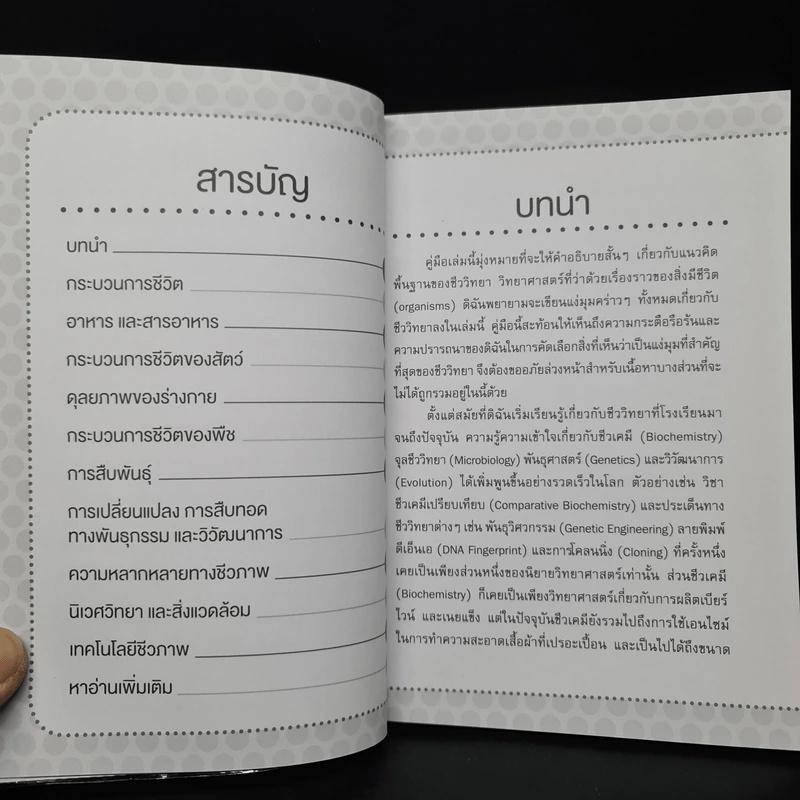 สารบัญ
บทนำ
กระบวนการชีวิต
อาหาร และสารอาหาร
กระบวนการชีวิตของสัตว์
ดุลยภาพของร่างกาย
กระบวนการชีวิตของพืช
การสืบพันธุ์
การเปลี่ยนแปลง การสืบทอด
ทางพันธุกรรม และวิวัฒนาการ
ความหลากหลายทางชีวภาพ
นิเวศวิทยา และสิ่งแวดล้อม
เทคโนโลยีชีวภาพ
หาอ่านเพิ่มเติม
บทนำ
คู่มือเล่มนี้มุ่งหมายที่จะให้คำอธิบายสั้นๆ เกี่ยวกับแนวคิด
พื้นฐานของชีววิทยา วิทยาศาสตร์ที่ว่าด้วยเรื่องราวของสิ่งมีชีวิต
(organisms) ดิฉันพยายามจะเขียนแง่มุมคร่าวๆ ทั้งหมดเกี่ยวกับ
ชีววิทยาลงในเล่มนี้ คู่มือนี้สะท้อนให้เห็นถึงความกระตือรือร้นและ
ความปรารถนาของดิฉันในการคัดเลือกสิ่งที่เห็นว่าเป็นแง่มุมที่สำคัญ
ที่สุดของชีววิทยา จึงต้องขออภัยล่วงหน้าสำหรับเนื้อหาบางส่วนที่จะ
ไม่ได้ถูกรวมอยู่ในนี้ด้วย
ตั้งแต่สมัยที่ดิฉันเริ่มเรียนรู้เกี่ยวกับชีววิทยาที่โรงเรียนมา
จนถึงปัจจุบัน ความรู้ความเข้าใจเกี่ยวกับชีวเคมี (Biochemistry)
จุลชีววิทยา (Microbiology) พันธุศาสตร์ (Genetics) และวิวัฒนาการ
(Evolution) ได้เพิ่มพูนขึ้นอย่างรวดเร็วในโลก ตัวอย่างเช่น วิชา
ชีวเคมีเปรียบเทียบ (Comparative Biochemistry) และประเด็นทาง
ชีววิทยาต่างๆ เช่น พันธุวิศวกรรม (Genetic Engineering) ลายพิมพ์
ดีเอ็นเอ (DNA Fingerprint) และการโคลนนิ่ง (Cloning) ที่ครั้งหนึ่ง
เคยเป็นเพียงส่วนหนึ่งของนิยายวิทยาศาสตร์เท่านั้น ส่วนชีวเคมี
(Biochemistry) ก็เคยเป็นเพียงวิทยาศาสตร์เกี่ยวกับการผลิตเบียร์
ไวน์ และเนยแข็ง แต่ในปัจจุบันชีวเคมียังรวมไปถึงการใช้เอนไซม์
ในการทำความสะอาดเสื้อผ้าที่เปรอะเปื้อน และเป็นไปได้ถึงขนาด